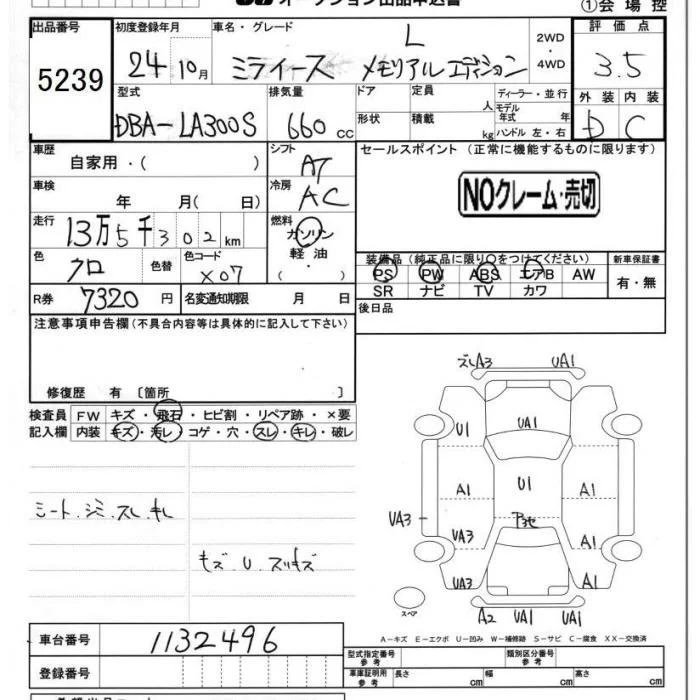 ①会場控
出品番号 初度登録年月 車名・グレード 評価点
5239
24年10月 ミライース L メモリアルエディション 2WD・4WD 3.5
型式 排気量 ドア 定員 人 ディーラー・並行 外装 内装
DBA-LA300S 660cc 形状 積載 kg モデル年式 年 ハンドル 左・右 D C
車歴 自家用・( ) シフト AT セールスポイント (正常に機能するものに限ります)
車検 年 月( 日) 冷房 AC
NOクレーム・売切
走行 13万5千302km 燃料 ガソリン・軽油・( )
色 クロ 色替 色コード X07
装備品 (純正品に限り○をつけてください) 新車保証書
PS PW ABS エアB AW 有・無
SR ナビ TV カワ
R券 7320円 名変通知期限 月 日
後日品
注意事項申告欄(不具合内容等は具体的に記入して下さい)
修復歴 有 〔箇所 〕
検査員 FW キズ・飛石・ヒビ割・リペア跡・×要
記入欄 内装 キズ・汚レ・コゲ・穴・スレ・キレ・破レ
シート.シミ.スレ.キレ
キズ.U.スリキズ
スレA3 UA1
U1 UA1
A1 U1 A1
UA3
UA3 A1
UA3 A1
A2 UA1 UA1
スペア
A-キズ E-エクボ U-凹み W-補修跡 S-サビ C-腐食 XX-交換済
車台番号 1132496
型式指定番号 参考 類別区分番号 参考
登録番号
車庫証明用 参考 長さ cm 幅 cm 高さ cm